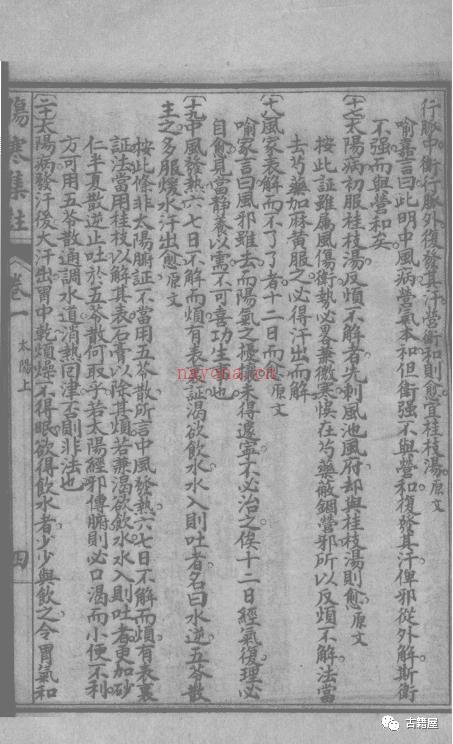 行脈中衛行脈外復發其汗營衛和則愈宜桂枝湯原文
喻嘉言曰此明中風病營氣本和但衛強不與營和復發其汗俾邪從外解斯衛
不强而與營和矣
(十七)太陽病初服桂枝湯反煩不解者先刺風池風府却與桂枝湯則愈原文
按此証雖屬風傷衛勢必畧兼微寒悞在芍藥斂錮營邪所以反煩不解法當
去芍藥加麻黄服之必得汗出而解
(十八)風家表解而不了了者十二日而愈原文
喻家言曰風邪雖去而陽氣之擾未得遽寧不必治之俟十二日經氣復理必
自愈見當静養以需不可喜功生事也
(十九)中風發熱六七日不解而煩有表裏証渴欲飲水水入則吐者名曰水逆五苓散
主之多服煖水汗出愈原文
按此條非太陽腑証不當用五苓散所言中風發熱六七日不解而煩有表裏
証法當用桂枝以解其表石膏以除其煩若兼渴欲飲水水入則吐者更加砂
仁半夏散逆止吐於五苓散何取乎若太陽經邪傳腑則必口渴而小便不利
方可用五苓散通調水道消熱回津否則非法也
(二十)太陽病發汗後大汗出胃中乾煩燥不得眠欲得飲水者少少與飲之令胃氣和
傷寒集註
卷一
太陽上
四
nayona.cn
古籍屋